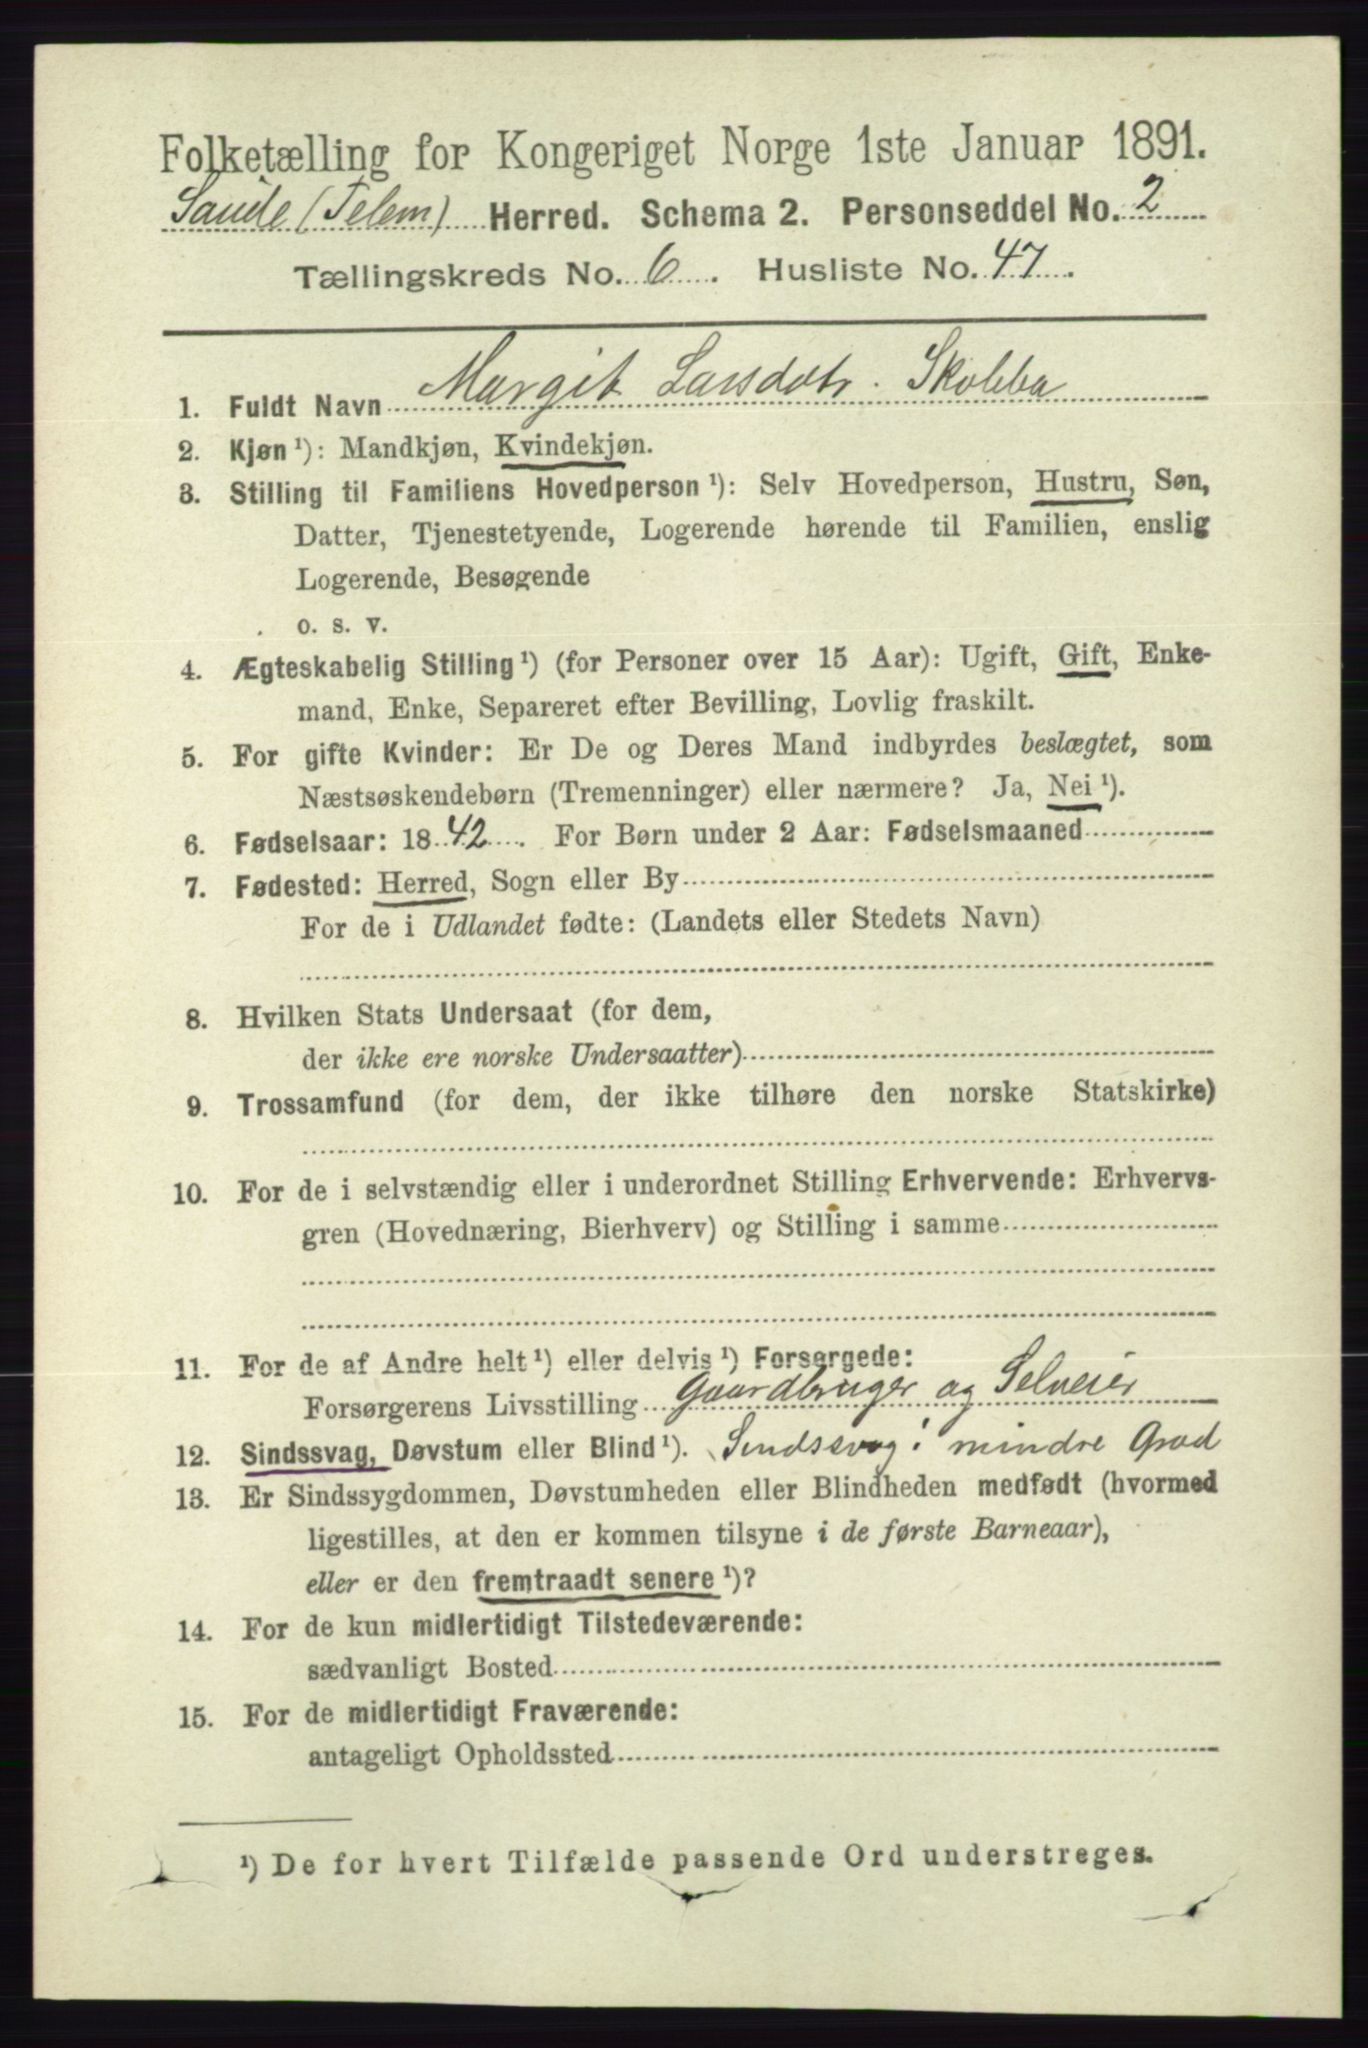 Folketælling for Kongeriget Norge 1ste Januar 1891.
Saude (Telem) Herred. Schema 2. Personseddel No. 2
Tællingskreds No. 6. Husliste No. 47.
1. Fuldt Navn Margit Larsdotr. Skobba
2. Kjøn ¹): Mandkjøn, Kvindekjøn.
3. Stilling til Familiens Hovedperson ¹): Selv Hovedperson, Hustru, Søn,
Datter, Tjenestetyende, Logerende hørende til Familien, enslig
Logerende, Besøgende
o. s. v.
4. Ægteskabelig Stilling ¹) (for Personer over 15 Aar): Ugift, Gift, Enke-
mand, Enke, Separeret efter Bevilling, Lovlig fraskilt.
5. For gifte Kvinder: Er De og Deres Mand indbyrdes beslægtet, som
Næstsøskendebørn (Tremenninger) eller nærmere? Ja, Nei ¹).
6. Fødselsaar: 1842. For Børn under 2 Aar: Fødselsmaaned
7. Fødested: Herred, Sogn eller By
For de i Udlandet fødte: (Landets eller Stedets Navn)
8. Hvilken Stats Undersaat (for dem,
der ikke ere norske Undersaatter)
9. Trossamfund (for dem, der ikke tilhøre den norske Statskirke)
10. For de i selvstændig eller i underordnet Stilling Erhvervende: Erhvervs-
gren (Hovednæring, Bierhverv) og Stilling i samme
11. For de af Andre helt ¹) eller delvis ¹) Forsørgede:
Forsørgerens Livsstilling Gaardbruger og Selveier
12. Sindssvag, Døvstum eller Blind ¹). Sindssvag i mindre Grad
13. Er Sindssygdommen, Døvstumheden eller Blindheden medfødt (hvormed
ligestilles, at den er kommen tilsyne i de første Barneaar),
eller er den fremtraadt senere ¹)?
14. For de kun midlertidigt Tilstedeværende:
sædvanligt Bosted
15. For de midlertidigt Fraværende:
antageligt Opholdssted
¹) De for hvert Tilfælde passende Ord understreges.